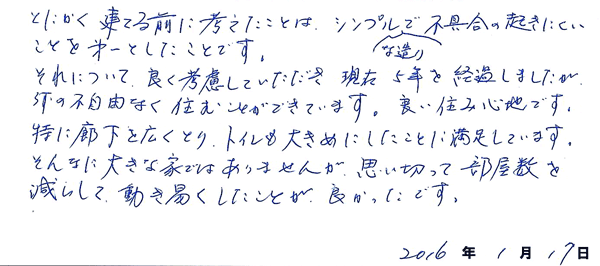 とにかく建てる前に考えたことは、シンプルで不具合の起きにくい
な造り
ことを第一としたことです。
それについて、良く考慮していただき現在5年を経過しましたが、
何の不自由なく住むことができています。良い住み心地です。
特に廊下を広くとり、トイレも大きめにしたことに満足しています。
そんなに大きな家ではありませんが、思い切って部屋数を
減らして、動き易くしたことが、良かったです。
2016年1月17日